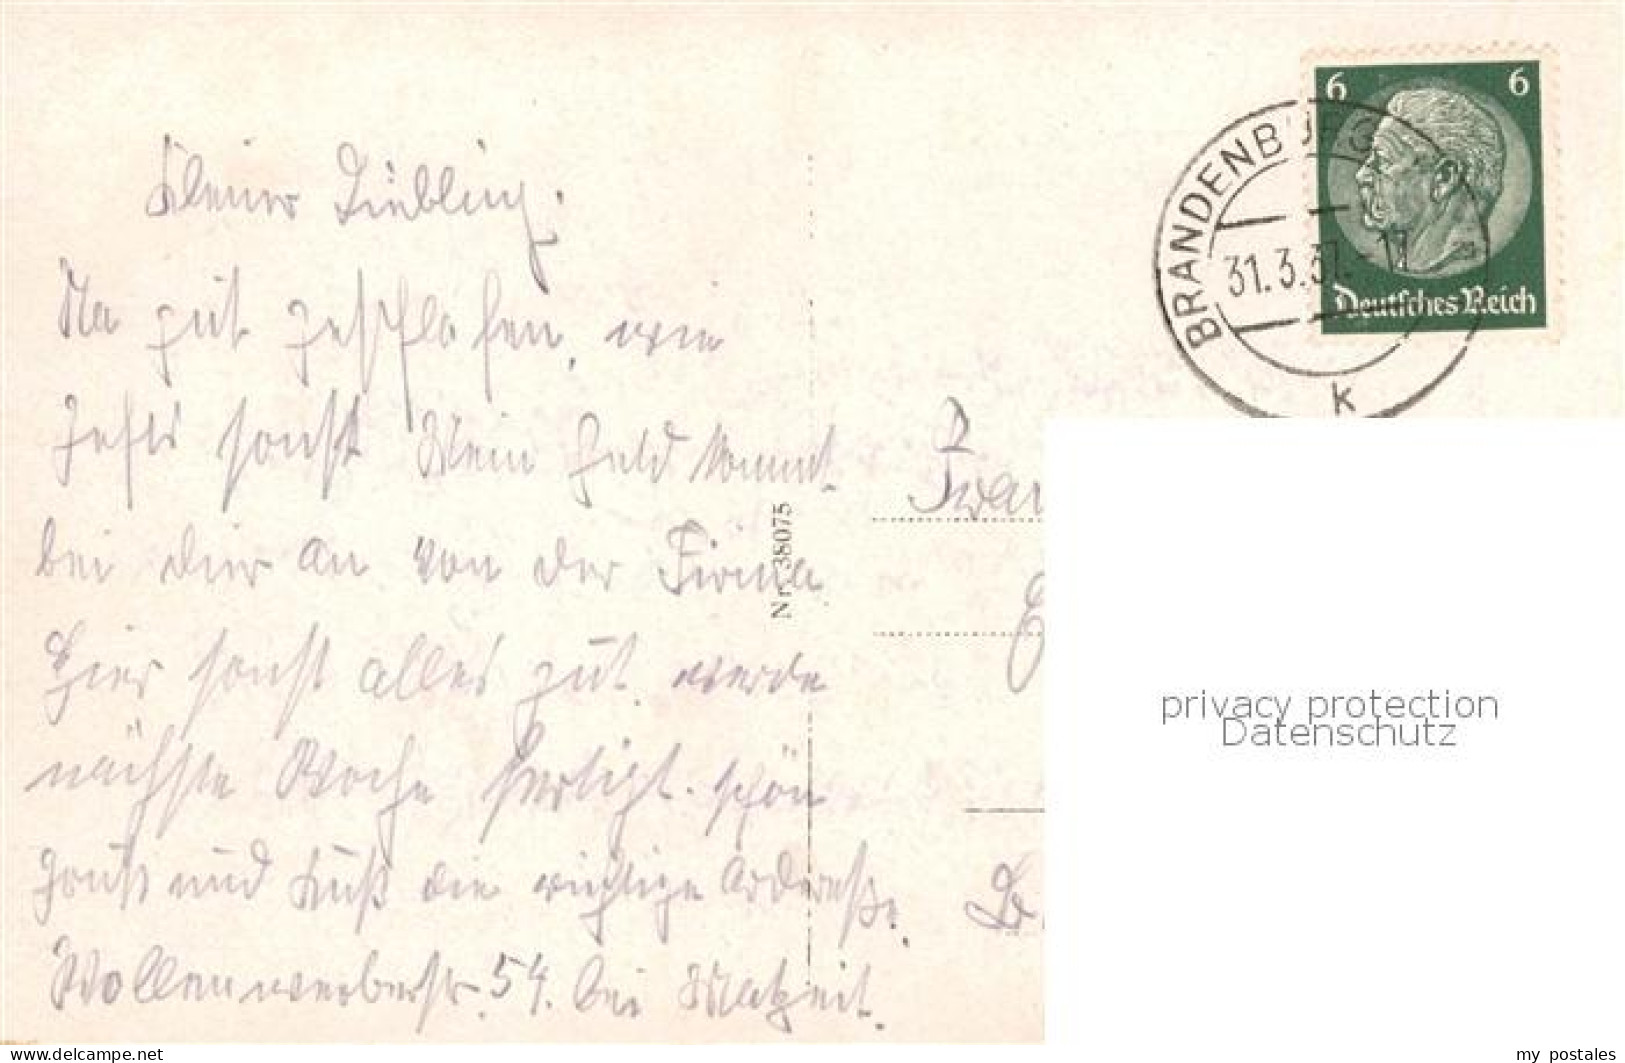 Kleiner Liebling.
Na gut geschlafen, wie
gehts sonst Mein Geld kommt
bei dir an von der Firma
Hier sonst alles gut werde
nächste Woche fertig. schön
Gruß und Kuß die richtige Adresse.
Wollenweberstr. 54. bei
6 6
Deutsches Reich
BRANDENBURG
31.3.37.-17
k
Nr. 38075
privacy protection
Datenschutz
www.delcampe.net
my_postales